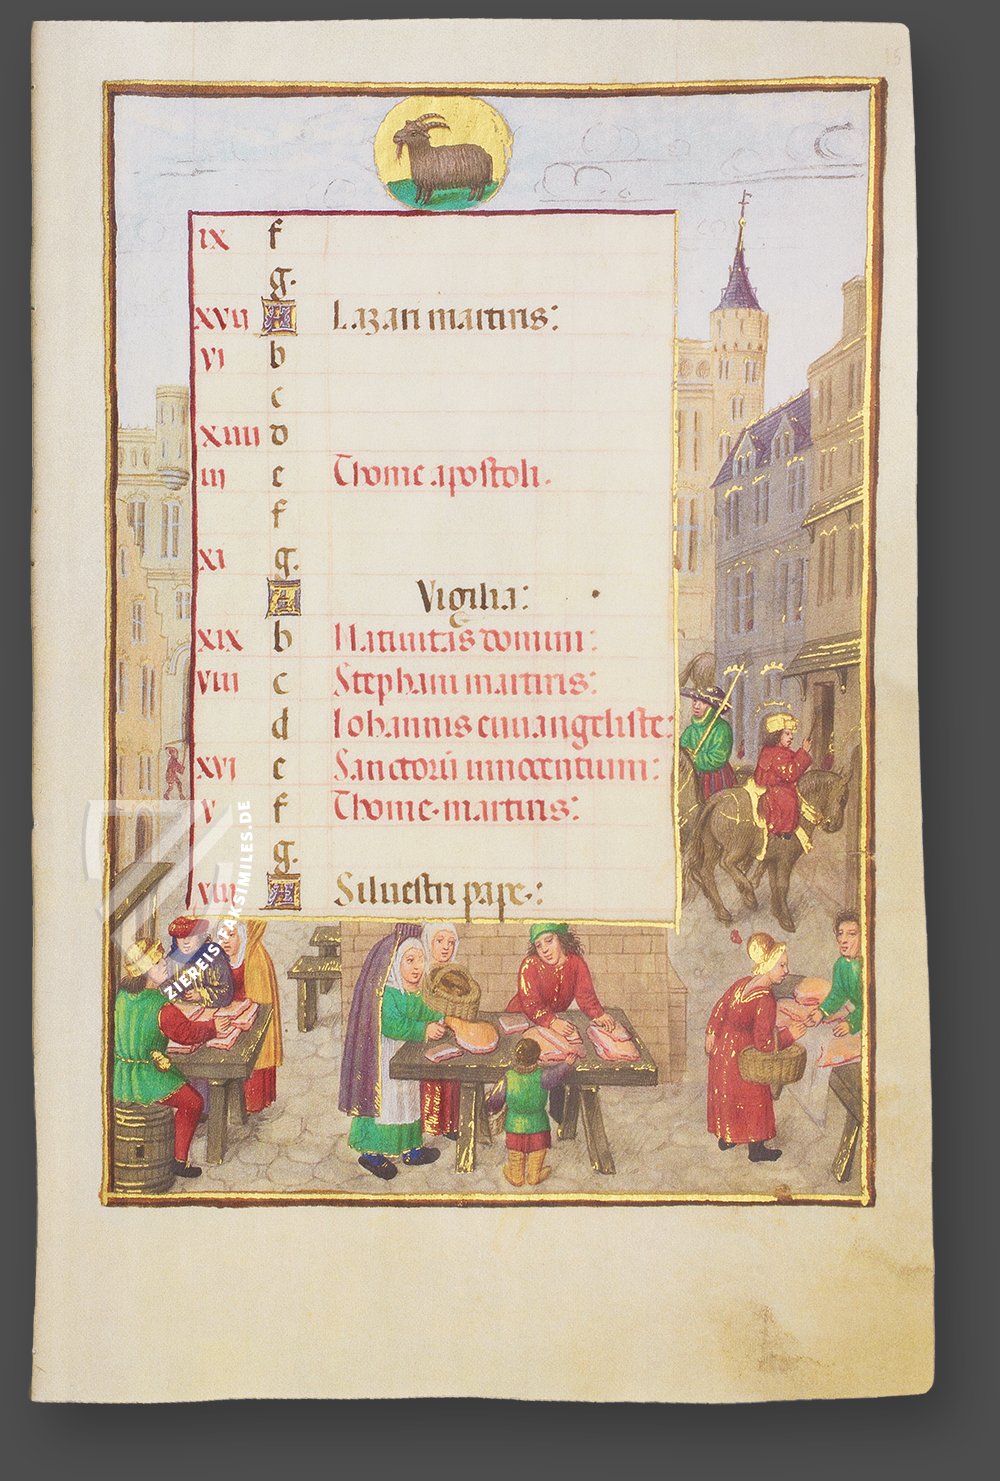 IX f
g.
XVII A Lazari martiris:
VI b
c
XIIII d
III e Thome apostoli.
f
XI g.
A Vigilia:
XIX b Natiuitas domini:
VIII c Stephani martiris:
d Iohannis euuangeliste:
XVI e Sanctorū innocentium:
V f Thome martiris:
g.
XIII A Siluestri pape:
ZIEREIS FAKSIMILES.DE